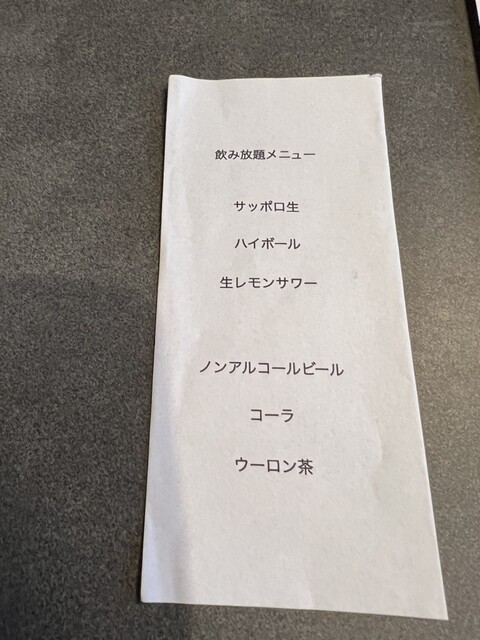 飲み放題メニュー
サッポロ生
ハイボール
生レモンサワー
ノンアルコールビール
コーラ
ウーロン茶